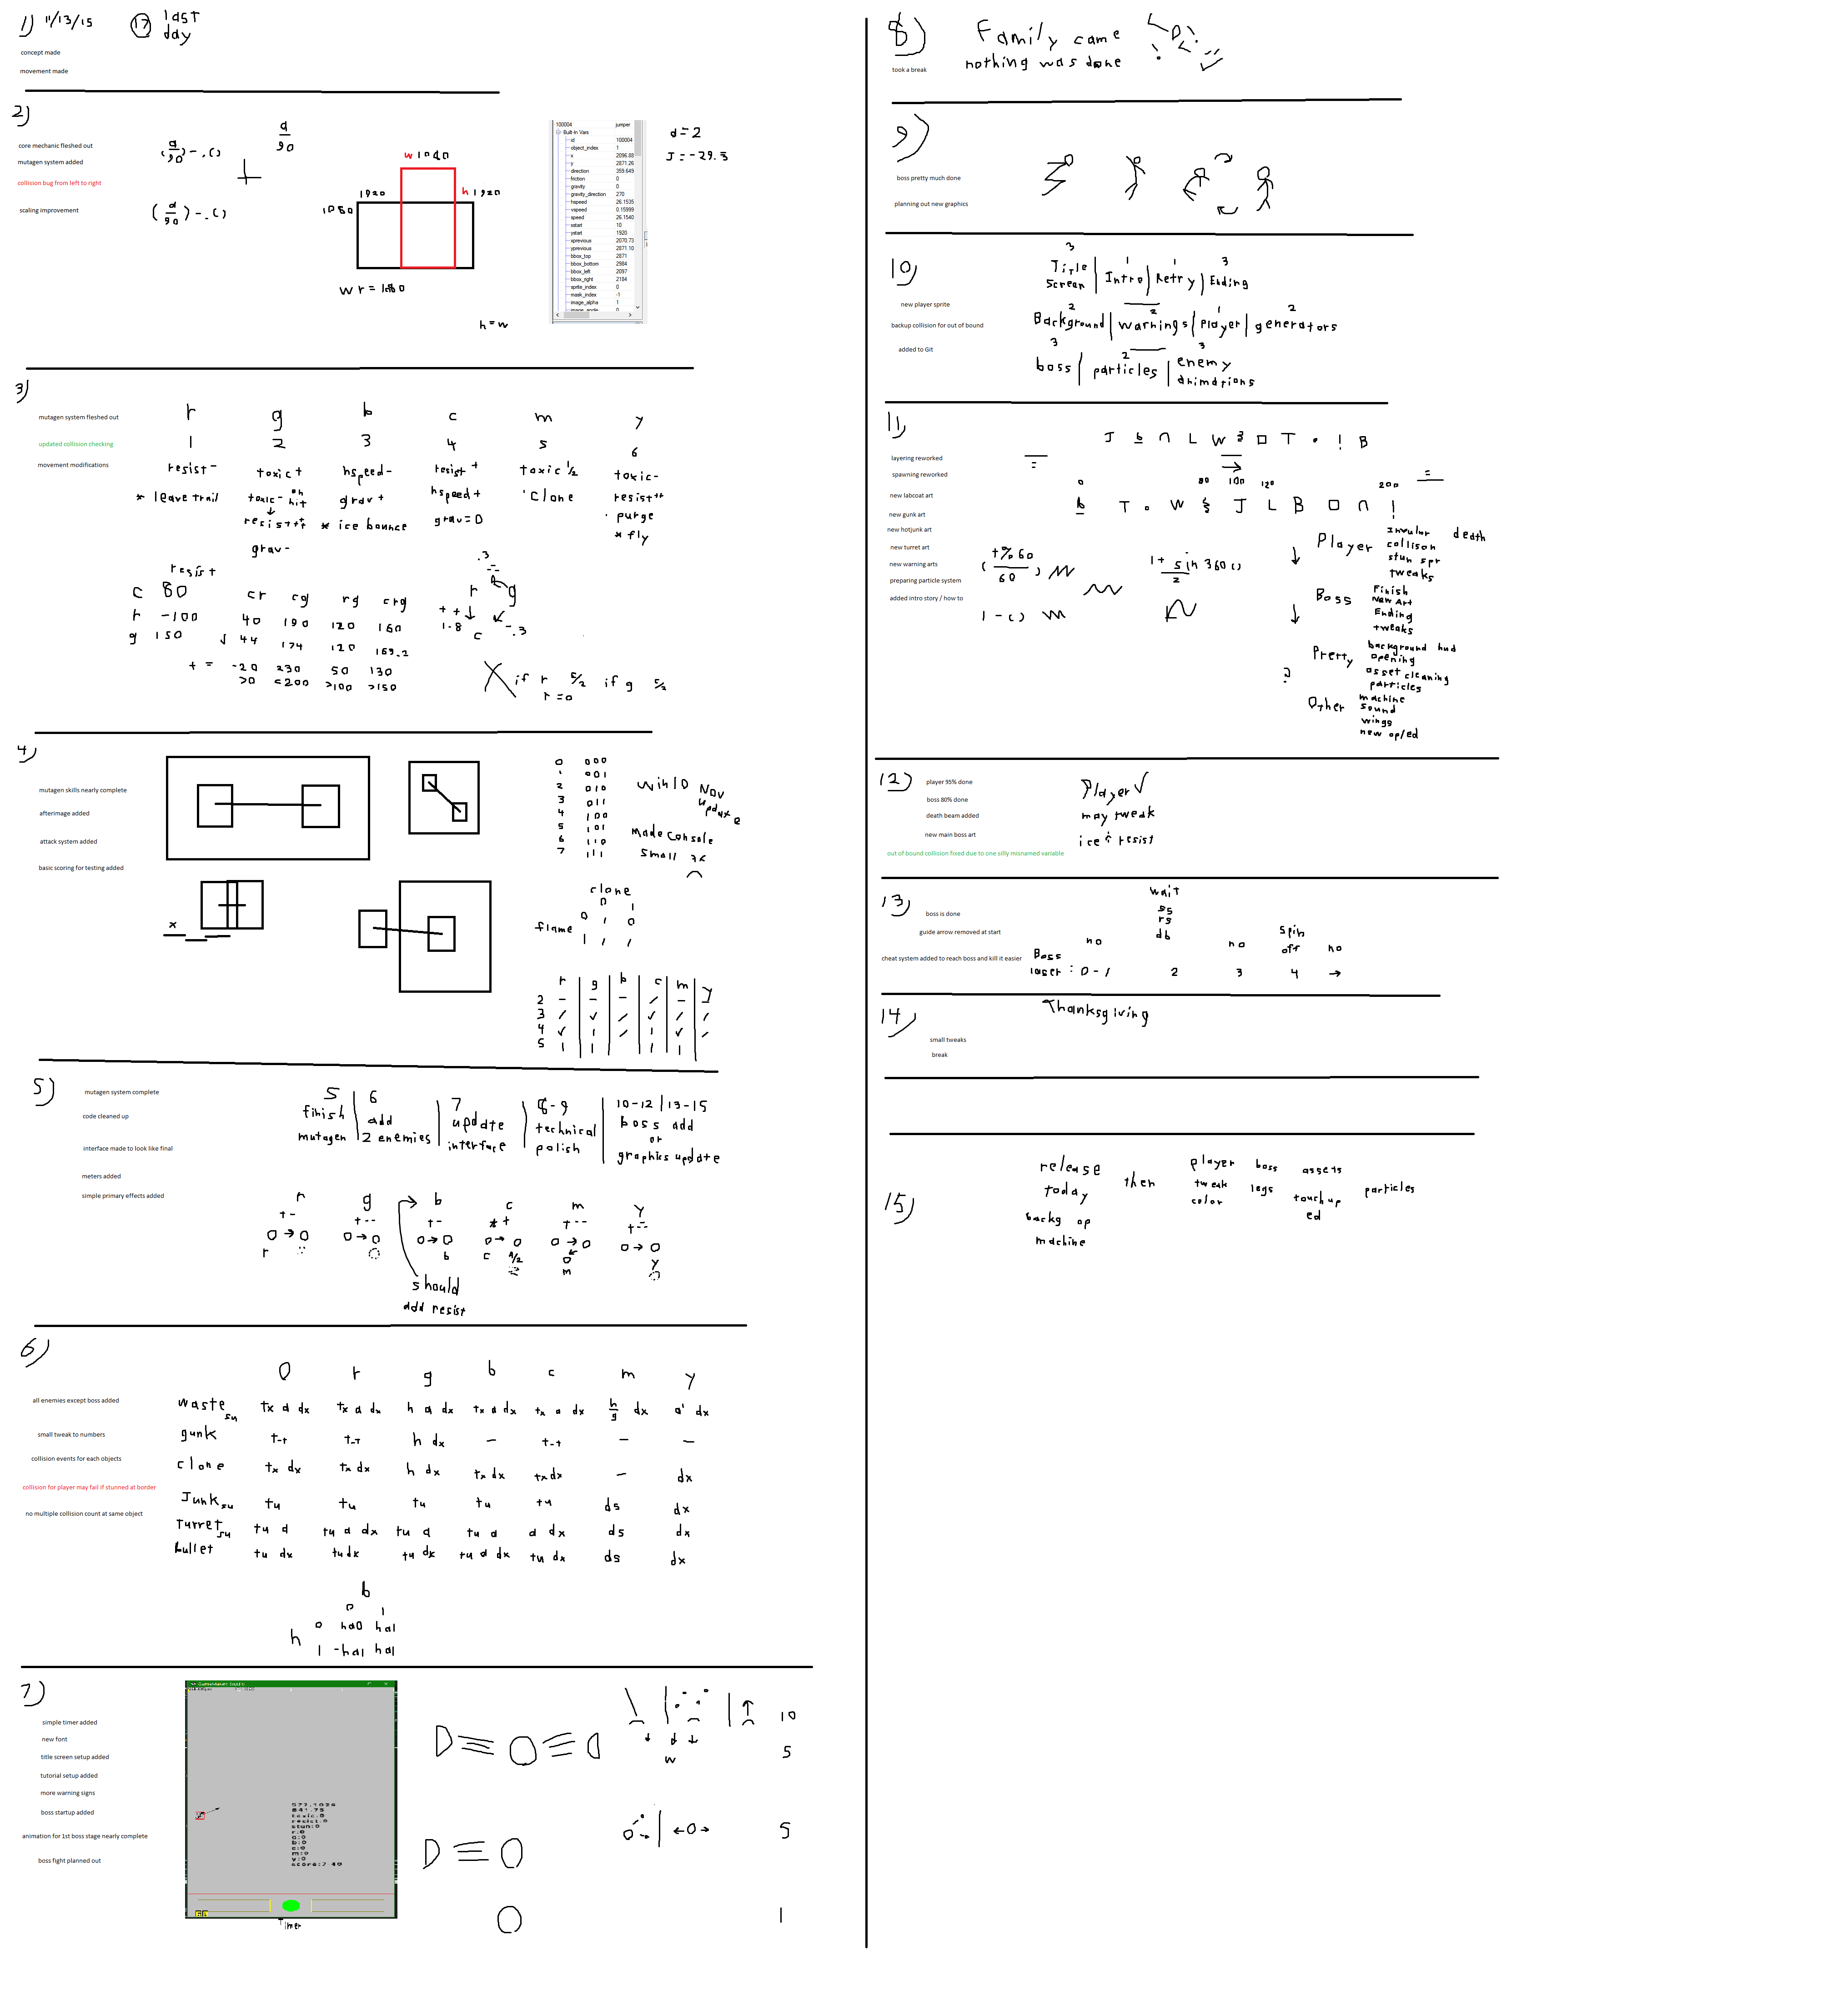 1) 11/13/15
17 last day
concept made
movement made
2)
core mechanic fleshed out
mutagen system added
collision bug from left to right
scaling improvement
(d/90) - .()
d/90
(d/90) - .()
w 1080
1920
h 1920
1080
w r = 1080
h = w
100004 jumper
Built-In Vars
id 100004
object_index 1
x 2096.88
y 2871.26
direction 359.649
friction 0
gravity 0
gravity_direction 270
hspeed 26.1535
vspeed 0.15999
speed 26.1540
xstart 10
ystart 1920
xprevious 2070.73
yprevious 2871.10
bbox_top 2871
bbox_bottom 2984
bbox_left 2097
bbox_right 2184
sprite_index 0
mask_index -1
image_alpha 1
image_angle 0
d = 2
J = -29.5
3)
mutagen system fleshed out
updated collision checking
movement modifications
r g b c m y
1 2 3 4 5 6
resist- toxic+ hspeed- resist+ toxic 1/2 toxic-
* leave trail toxic- on hit grav+ hspeed+ 'clone resist++
resist+++ * ice bounce grav=0 · purge
grav- * fly
resist
c 80 cr cg rg crg
r -100 40 190 120 160
g 150 √ 44 174 120 169.2
+ = -20 230 50 130
>0 <200 >100 >150
.3
r g
++
1-8 c -.3
X if r 5/2 if g 5/2
r=0
4)
mutagen skills nearly complete
afterimage added
attack system added
basic scoring for testing added
x
0 000
1 001
2 010
3 011
4 100
5 101
6 110
7 111
Win10 Nov update
made console small
clone
0 1
0 1 0
flame
1 1 1
r g b c m y
2 - - - / - -
3 / ✓ / ✓ / /
4 ✓ 1 / 1 ✓ /
5 1 1 1 1
5)
mutagen system complete
code cleaned up
interface made to look like final
meters added
simple primary effects added
5 finish mutagen
6 add 2 enemies
7 update interface
8-9 technical polish
10-12 | 13-15 boss add or graphics update
r g b c m y
should
add resist
6)
all enemies except boss added
small tweak to numbers
collision events for each objects
collision for player may fail if stunned at border
no multiple collision count at same object
0 r g b c m y
waste su tx a dx tx a dx h a dx tx a dx tx a dx h/g dx a' dx
gunk t-t t-t h dx - t-t - -
clone tx dx tx dx h dx tx dx tx dx - dx
Junk su tu tu tu tu tu ds dx
Turret su tu a tu a dx tu a tu a a dx ds dx
bullet tu dx tu dx tu dx tu a dx tu dx ds dx
b
0 1
0 ha0 ha1
h
1 -ha1 ha1
7)
simple timer added
new font
title screen setup added
tutorial setup added
more warning signs
boss startup added
animation for 1st boss stage nearly complete
boss fight planned out
toxic:0
resist:0
stun:0
Timer
10
w 5
5
1
8)
took a break
Family came
nothing was done
9)
boss pretty much done
planning out new graphics
10)
new player sprite
backup collision for out of bound
added to Git
3 1 1 3
Title Screen | Intro | Retry | Ending
2 2 1 2
Background | warnings | Player | generators
3 2 3
boss | particles | enemy animations
11)
layering reworked
spawning reworked
new labcoat art
new gunk art
new hotjunk art
new turret art
new warning arts
preparing particle system
added intro story / how to
0 80 100 120 200
(t%60 / 60)
1 - ()
1 + sin 360() / 2
Player
invulnr death
collison
stun spr
tweaks
Boss
Finish
New Art
Ending
tweaks
Pretty
background hud
opening
asset cleaning
particles
?
Other
machine
sound
wings
new op/ed
12)
player 95% done
boss 80% done
death beam added
new main boss art
out of bound collision fixed due to one silly misnamed variable
Player ✓
may tweak
ice & resist
13)
boss is done
guide arrow removed at start
cheat system added to reach boss and kill it easier
wait
ss
rs
db
no no spin off no
Boss
laser : 0-1 2 3 4 →
14)
small tweaks
break
Thanksgiving
15)
release today
backg op
machine
then
player tweak color
boss legs
assets touch up
ed
particles